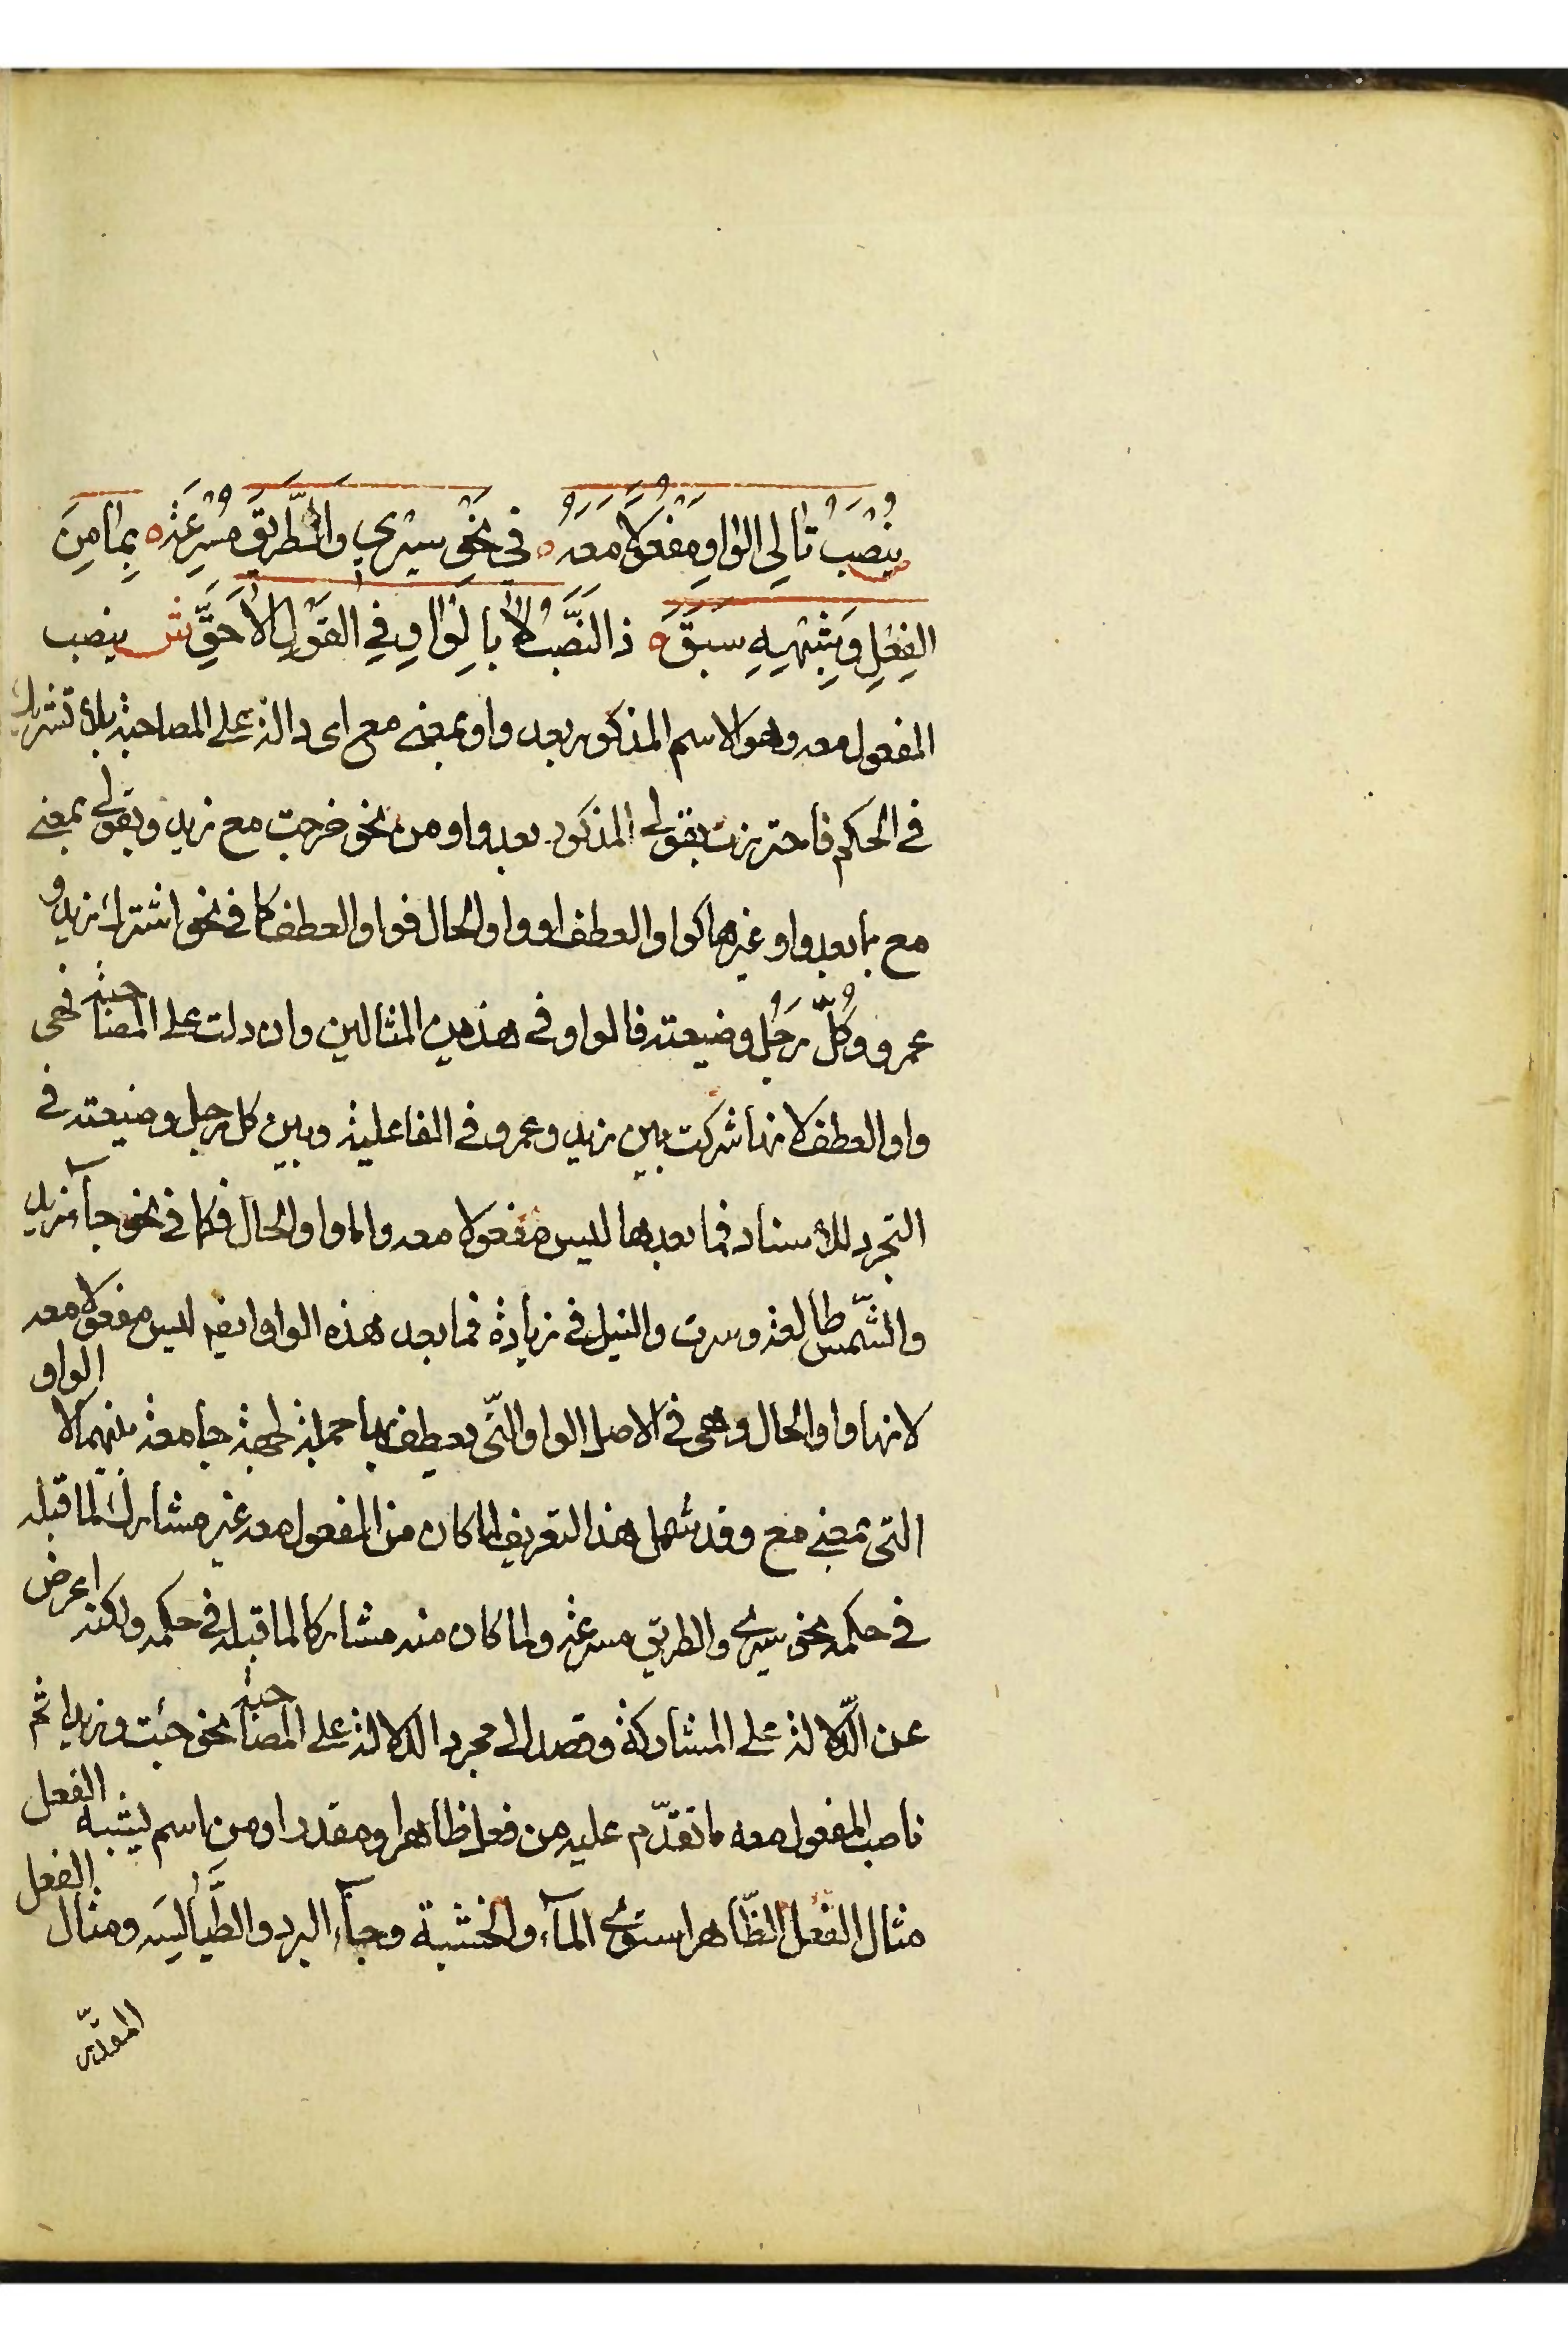 يُنْصَبُ تَالِي الوَاوِ مَفْعُولًا مَعَهُ ه في نَحْوِ سِيْرِي وَالطَّرِيْقَ مُسْرِعَةْ ه بِمَا مِنَ
الفِعْلِ وَشِبْهِهِ سَبَقْ ه ذَا النَّصْبُ لَا بِالْوَاوِ فِي القَوْلِ الأَحَقِّ ش ينصب
المفعول معه وهو الاسم المذكور بعد واو بمعنى مع اى دالة على المصاحبة بلا تشريك
فى الحكم فاحترزت بقولى المذكور بعد واو من نحو خرجت مع زيد وبقولى بمعنى
مع ما بعد واو غيرها كواو العطف او واو الحال فواو العطف كما فى نحو اشترك زيد و
عمرو وكُلُّ رَجُلٍ وضيعته فالواو فى هذين المثالين وان دلت على المصاحبة فهى
واو العطف لانها شركت بين زيد وعمرو فى الفاعلية وبين كل رجل وضيعته فى
التجرد للاسناد فما بعدها ليس مفعولا معه واما واو الحال فكما فى نحو جآء زيد
والشّمس طالعة وسرت والنيل فى زيادة فما بعد هذه الواو ايضا ليس مفعولا معه
لانها واو الحال وهى فى الاصل الواو التّى يعطف بها جملة لجهة جامعة بينهما لا الواو
التى بمعنى مع وقد شمل هذا التعريف لما كان من المفعول معه غير مشارك لما قبله
فى حكمه نحو سيرى والطريق مسرعة ولما كان منه مشاركا لما قبله فى حكمه ولكنه اعرض
عن الدّلالة على المشاركة وقصد الى مجرد الدلالة على المصاحبة نحو جئت وزيدا ثم
ناصب المفعول معه ما تقدّم عليه من فعل ظاهر او مقدر او من اسم يشبه الفعل
مثال الفعل الظّاهر استوى المآء والخشبة وجآء البرد والطَّيالسَه ومثال الفعل
المقدّر